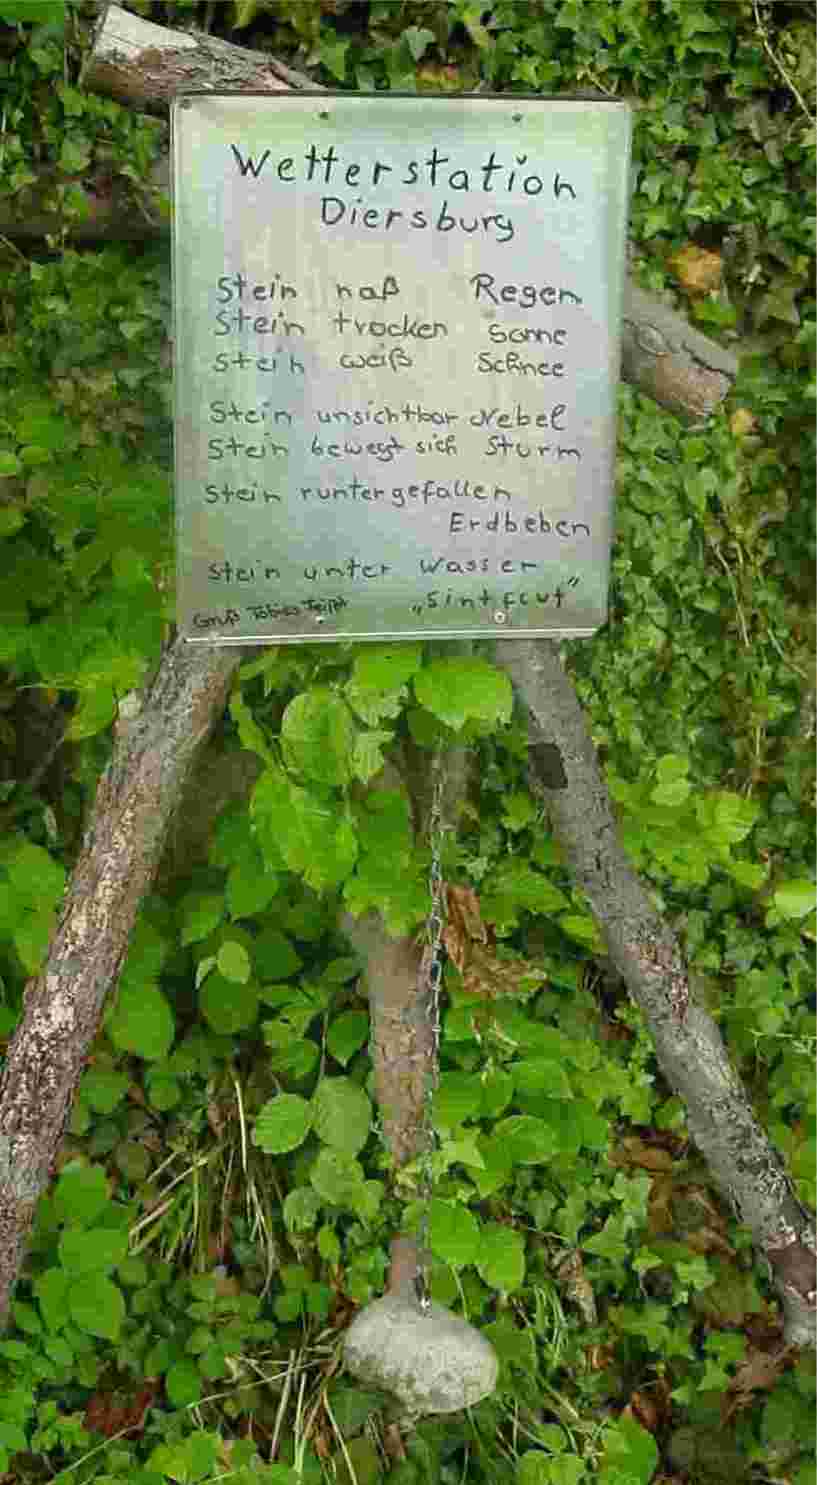 Wetterstation
Diersburg
Stein naß Regen
Stein trocken Sonne
Stein weiß Schnee
Stein unsichtbar Nebel
Stein bewegt sich Sturm
Stein runtergefallen
Erdbeben
Stein unter Wasser
„Sintflut"
Gruß Tobias